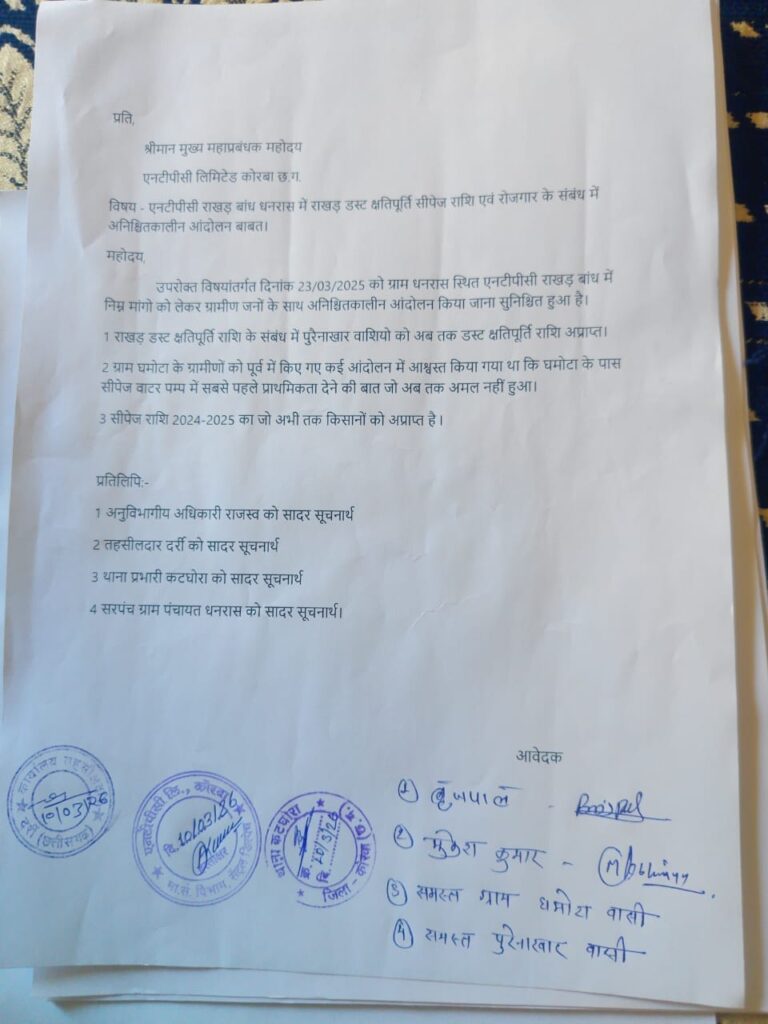 प्रति,
श्रीमान मुख्य महाप्रबंधक महोदय
एनटीपीसी लिमिटेड कोरबा छ.ग.
विषय - एनटीपीसी राखड़ बांध धनरास में राखड़ डस्ट क्षतिपूर्ति सीपेज राशि एवं रोजगार के संबंध में
अनिश्चितकालीन आंदोलन बाबत।
महोदय,
उपरोक्त विषयांतर्गत दिनांक 23/03/2025 को ग्राम धनरास स्थित एनटीपीसी राखड़ बांध में
निम्न मांगो को लेकर ग्रामीण जनों के साथ अनिश्चितकालीन आंदोलन किया जाना सुनिश्चित हुआ है।
1 राखड़ डस्ट क्षतिपूर्ति राशि के संबंध में पुरैनाखार वाशियो को अब तक डस्ट क्षतिपूर्ति राशि अप्राप्त।
2 ग्राम घमोटा के ग्रामीणों को पूर्व में किए गए कई आंदोलन में आश्वस्त किया गया था कि घमोटा के पास
सीपेज वाटर पम्प में सबसे पहले प्राथमिकता देने की बात जो अब तक अमल नहीं हुआ।
3 सीपेज राशि 2024-2025 का जो अभी तक किसानों को अप्राप्त है ।
प्रतिलिपि:-
1 अनुविभागीय अधिकारी राजस्व को सादर सूचनार्थ
2 तहसीलदार दर्री को सादर सूचनार्थ
3 थाना प्रभारी कटघोरा को सादर सूचनार्थ
4 सरपंच ग्राम पंचायत धनरास को सादर सूचनार्थ।
आवेदक
① बृजपाल -
② मुकेश कुमार -
③ समस्त ग्राम घमोटा वासी
④ समस्त पुरैनाखार वासी
कार्यालय तहसीलदार
10/03/26
दर्री (छत्तीसगढ़)
एनटीपीसी लि., कोरबा
दि. 10/03/26
थाना कटघोरा
दि. 10/3/26
जिला - कोरबा (छ.ग.)